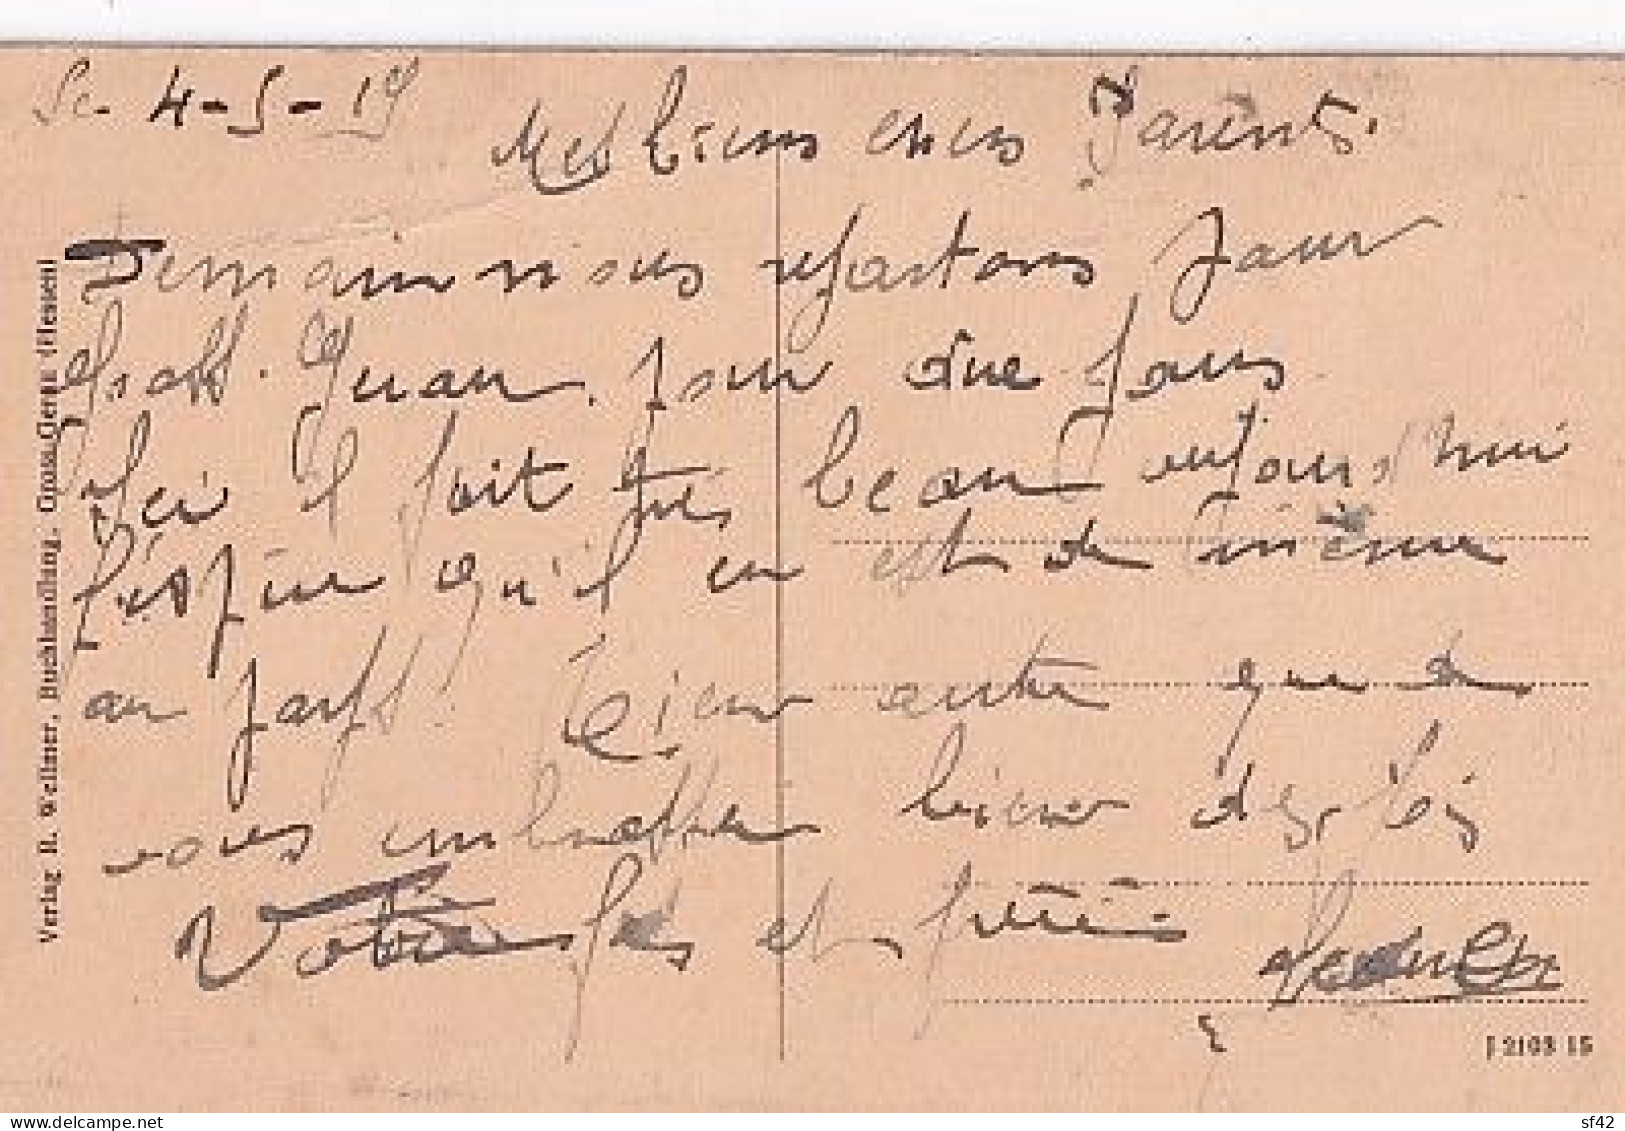 Le 4-5-19
Mes biens chers Parents.
Demain nous repartons pour
pour que jours
Ici il fait très beau aujourd'hui
J'espère qu'il en est de même
au pays! Rien autre que de
vous embrasser bien des fois
Votre fils et frère
Verlag H. Wellner, Buchhandlung, Gross-Gerau (Hessen)
J 2103 15
delcampe.net
sf42